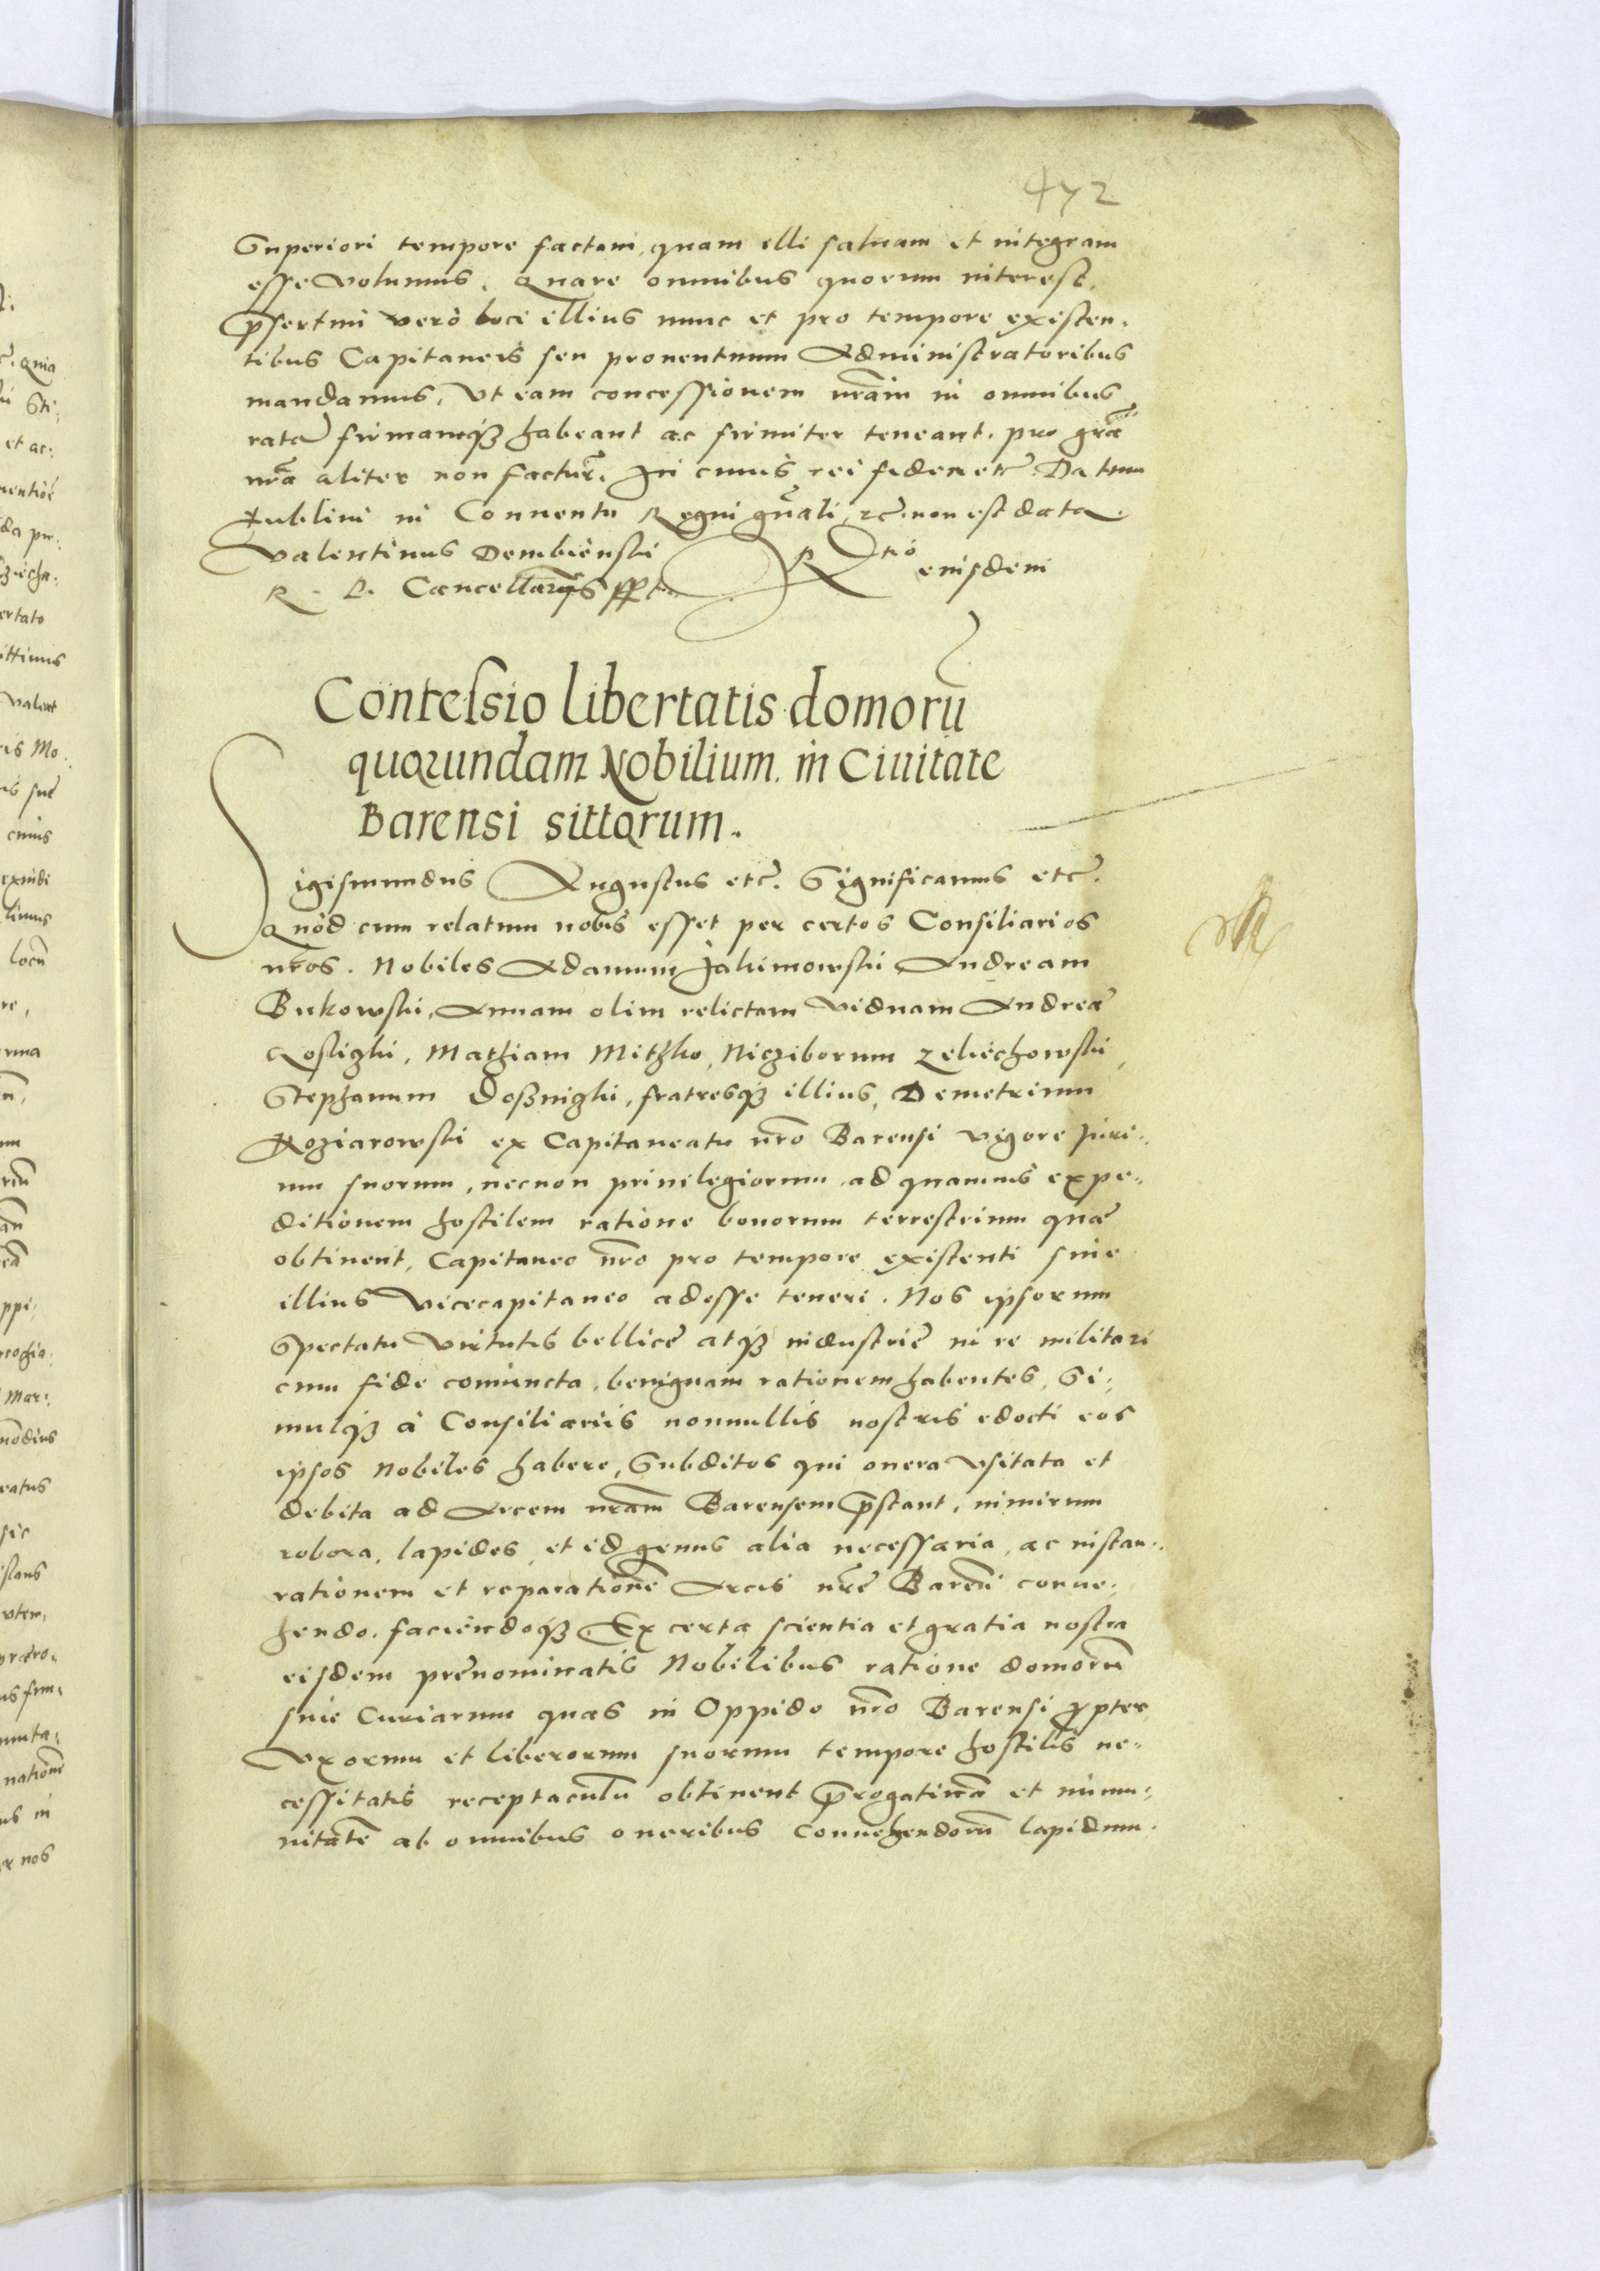 472
Superiori tempore factam, quam illi saluam et integram
esse volumus. Quare omnibus quorum interest,
p̄sertim verò loci illius nunc et pro tempore existen-
tibus Capitaneis seu prouentuum Administratoribus
mandamus, vt eam concessionem nr̄am in omnibus
rata firmamq́ꝫ habeant ac firmiter teneant. pro grā
nr̄a aliter non factur̄. In cuius rei fidem etc̄. Datum
Lublini in Conuentu Regni gn̄ali, etc̄. non est data.
Valentinus Dembienski
R. P. Cancellarius sspt.
Rtiō eiusdem
Contessio libertatis domorū
quorundam Nobilium in Ciuitate
Barensi sittorum.
Sigismundus Augustus etc̄. Significamus etc̄.
Quòd cum relatum nobis esset per certos Consiliarios
nr̄os. Nobiles Adamum Jakimowski Andream
Bukowski, Annam olim relictam viduam Andreæ
Mathiam Mitzko, Nicziborum Zeliechowski
Stephanum fratresq́ꝫ illius, Demetrium
Koziarowski ex Capitaneatu nr̄o Barensi vigore Juri-
um suorum, necnon priuilegiorum, ad quamuis expe-
ditionem hostilem ratione bonorum terrestrium quæ
obtinent, Capitaneo nr̄o pro tempore existenti siue
illius Vicecapitaneo adesse teneri. Nos ipsorum
Spectatu virtutis bellicę atq́ꝫ industrię in re militari
cum fide coniuncta, benignam rationem habentes, Si-
mulq́ꝫ à Consiliariis nonnullis nostris edocti eos
ipsos Nobiles habere, Subditos qui onera vsitata et
debita ad Arcem nr̄am Barensem p̄stant, nimirum
robora, lapides, et id genus alia necessaria, ac instau-
rationem et reparationē Arcis nr̄ę Bareñ conue-
hendo, faciendoq́ꝫ Ex certa scientia et gratia nostra
eisdem pręnominatis Nobilibus ratione domorū
siue Curiarum quas in Oppido nr̄o Barensi ꝓpter
Vxorum et liberorum suorum tempore hostilis ne-
cessitatis receptaculū obtinent p̄rogatiuā et immu-
nitatē ab omnibus oneribus Conuehendorū lapidum.